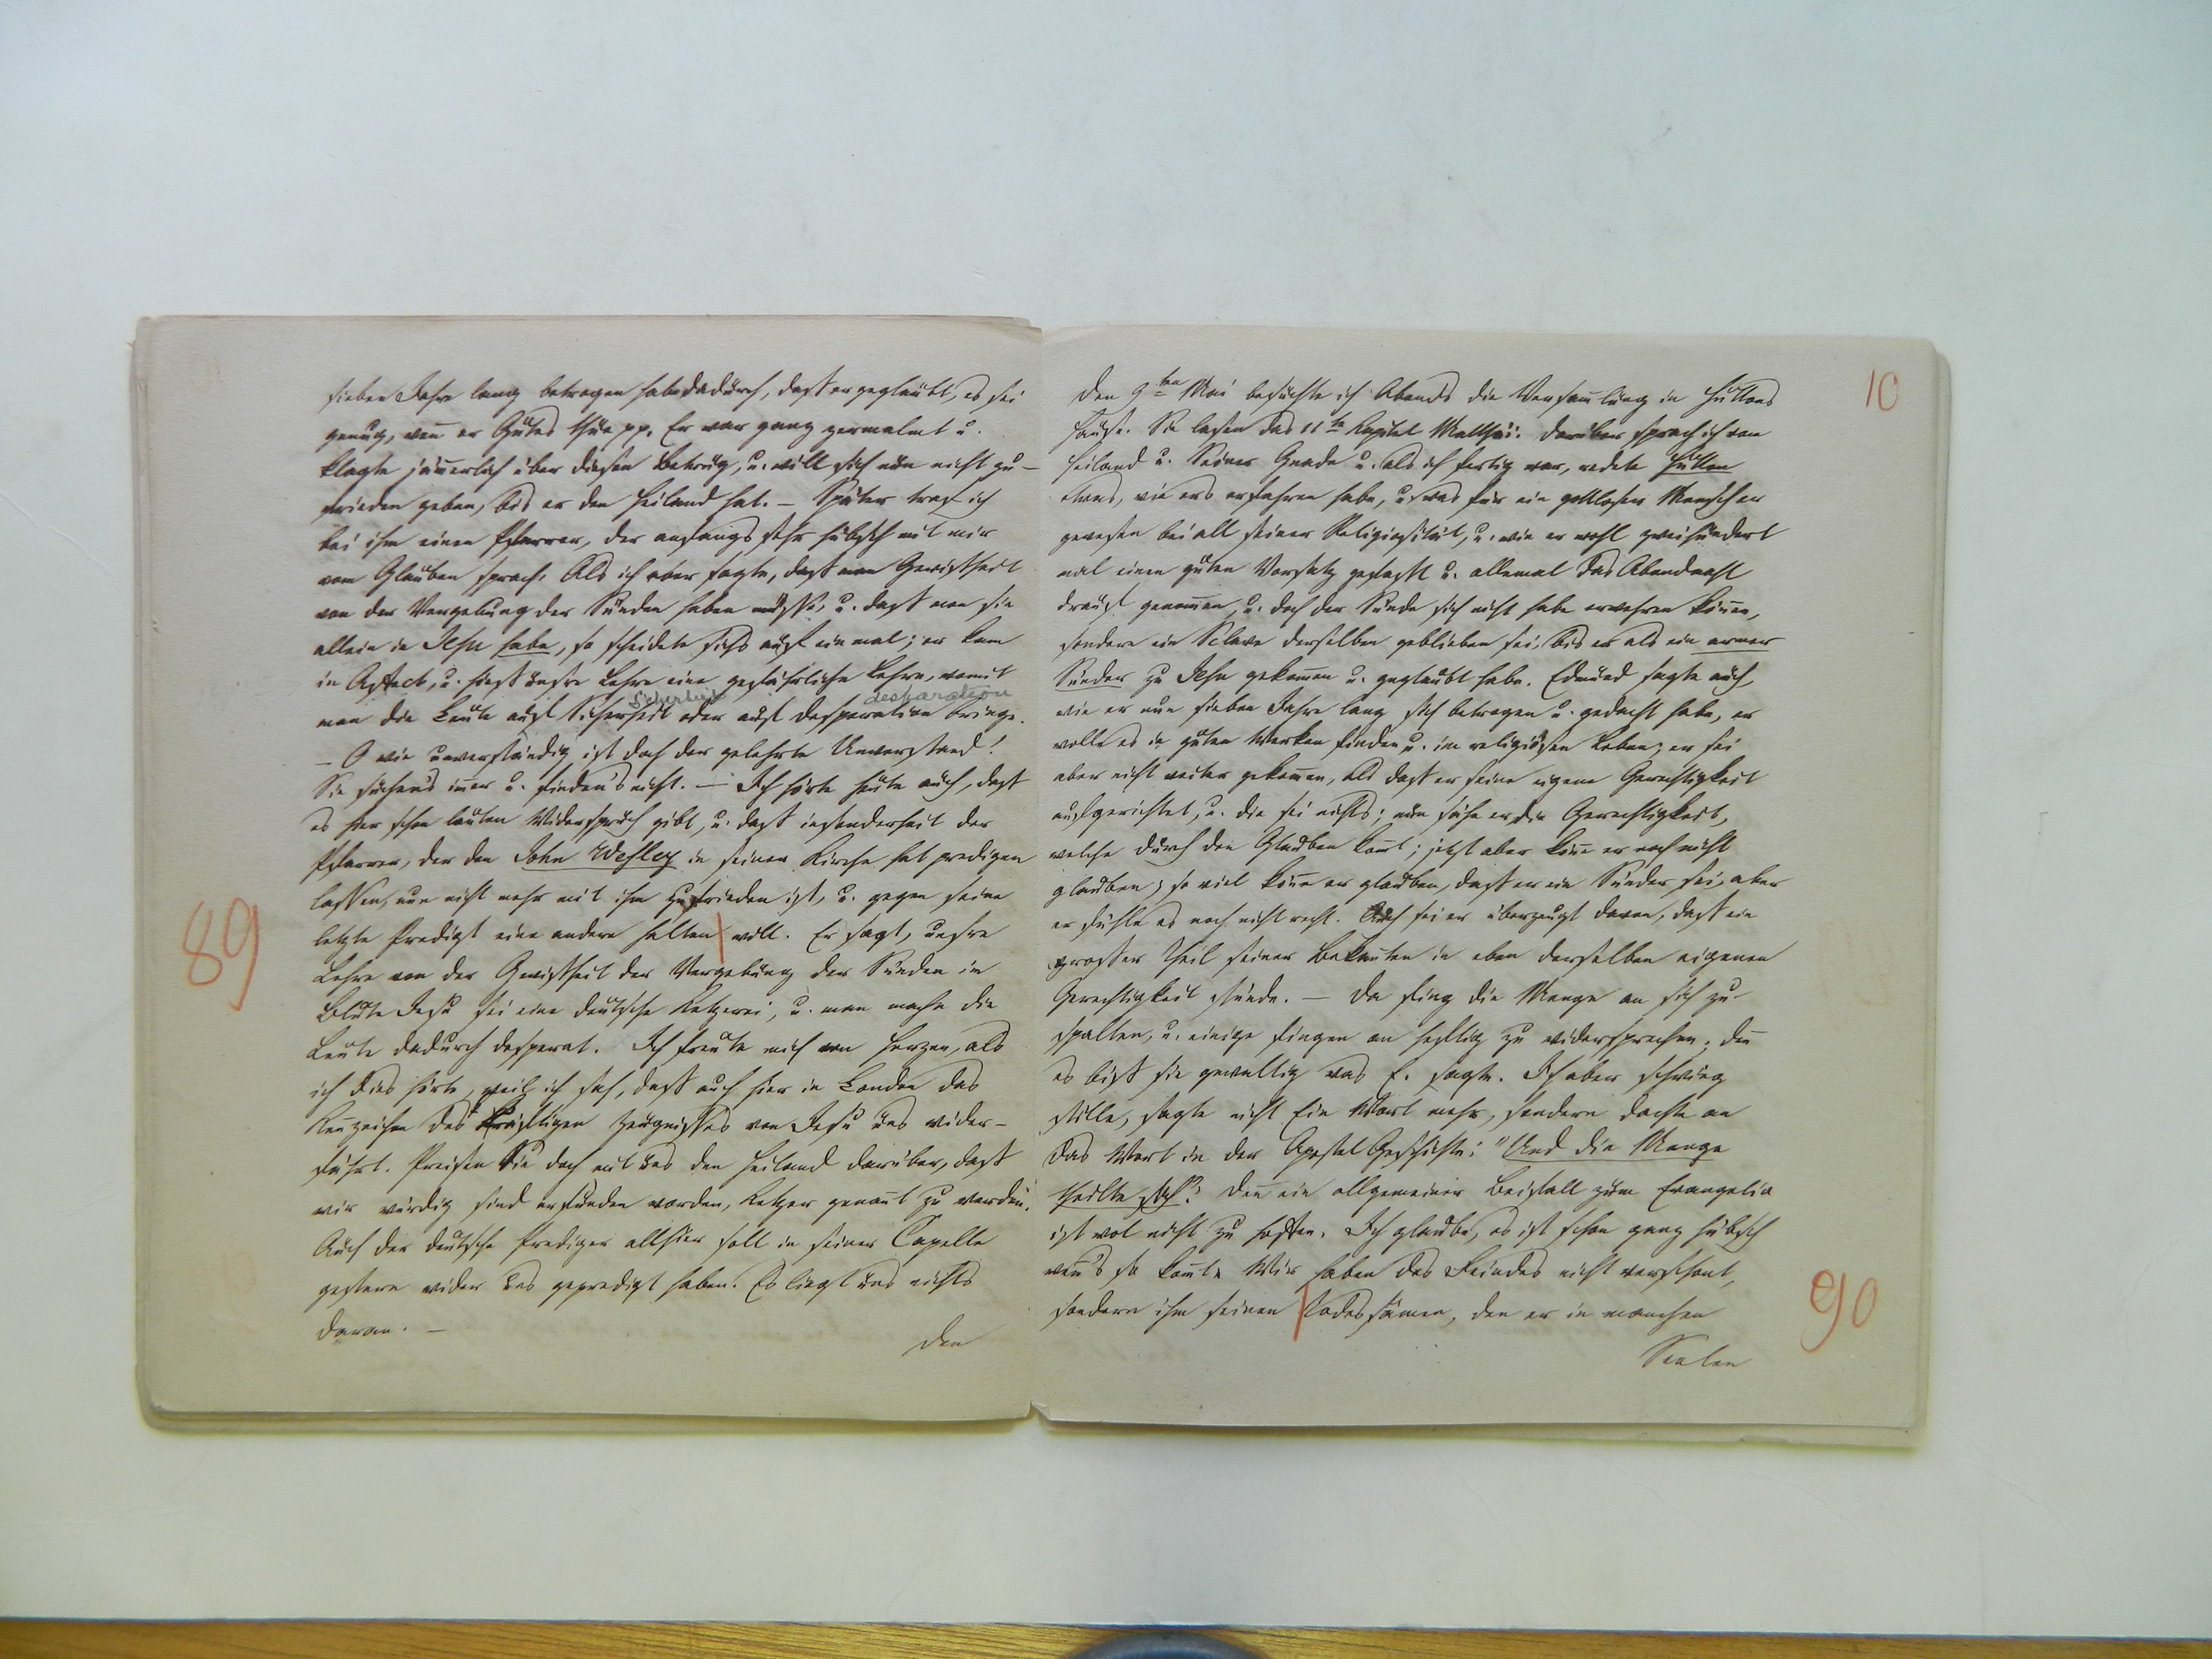 sieben Jahre lang betrogen habe dadurch, daß er geglaubt, es sei
genug, weñ er Gutes thue pp. Er war ganz zermalmt u.
klagte jämerlich über diesen Betrug, u. will sich nun nicht zu-
frieden geben, bis er den Heiland hat. – Später traf ich
bei ihm einen Pfarrer, der anfangs sehr hübsch mit mir
vom Glauben sprach. Als ich aber sagte, daß man Gewißheit
von der Vergebung der Sünden haben müsse, u. daß man sie
allein in Jesu habe, so scheidete sichs auf einmal; er kam
in Affect, u. hieß unsre Lehre eine gefährliche Lehre, womit
Sicherheit desparation
man die Leute auf Sicherheit oder auf Desperation bringe.
– O wie unverständig ist doch der gelehrte Unverstand!
Sie suchen's imer u. finden's nicht. – Ich hörte heute auch, daß
es hier schon lauten Widerspruch gibt, u. daß insonderheit der
Pfarrer, der den John Wesley in seiner Kirche hat predigen
lassen, nun nicht mehr mit ihm zufrieden ist, u. gegen seine
letzte Predigt eine andere halten will. Er sagt, unsre
89
Lehre von der Gewißheit der Vergebung der Sünden im
Blute Jesu sei eine deutsche Ketzerei, u. man mache die
Leute dadurch desperat. Ich freute mich von Herzen, als
ich dies hörte, weil ich sah, daß auch hier in London das
Keñzeichen des kräftigen Zeugnisses von Jesu uns wider-
fährt. Preisen Sie doch mit uns den Heiland darüber, daß
wir würdig sind erfunden worden, Ketzer genañt zu werden.
Auch der deutsche Prediger allhier soll in seiner Capelle
gestern wider uns gepredigt haben. Es liegt uns nichts
daran. –
Den
10
Den 9ten Mai besuchte ich Abends die Versamlung in Huttons
Hause. Sie lasen das 11te Kapitel Matthäi. Darüber sprach ich vom
Heiland u. Seiner Gnade u. als ich fertig war, redete Hutton
etwas, wie ers erfahren habe, u. was für ein gottloser Mensch er
gewesen bei all seiner Religiosität, u. wie er wohl zweihundert
mal einen guten Vorsatz gefaßt u. allemal das Abendmahl
drauf genomen, u. doch der Sünde sich nicht habe erwehren köñen,
sondern ein Sclave derselben geblieben sei, bis er als ein armer
Sünder zu Jesu gekomen u. geglaubt habe. Edmund sagte auch,
wie er nun sieben Jahre lang sich betrogen u. gedacht habe, er
wolle es in guten Werken finden u. im religiösen Leben; er sei
aber nicht weiter gekomen, als daß er seine eigene Gerechtigkeit
aufgerichtet, u. die sei nichts; nun sähe er die Gerechtigkeit,
welche durch den Glauben komt; jetzt aber köñe er noch nicht
glauben; so viel köñe er glauben, daß er ein Sünder sei, aber
er fühle es noch nicht recht. Auch sei er überzeugt davon, daß ein
großer Theil seiner Bekañten in eben derselben eigenen
Gerechtigkeit stünde. – Da fing die Menge an sich zu
spalten, u. einige fingen an heftig zu widersprechen; deñ
es biß sie gewaltig was E. sagte. Ich aber schwieg
stille, sagte nicht Ein Wort mehr, sondern dachte an
das Wort in der Apostel Geschichte: "Und die Menge
theilte sich". Deñ ein allgemeiner Beifall zum Evangelio
ist wol nicht zu hoffen. Ich glaube, es ist schon ganz hübsch
weñ's so komt. Wir haben des Feindes nicht verschont,
sondern ihm seinen Todessamen, den er in manchen
90
Seelen